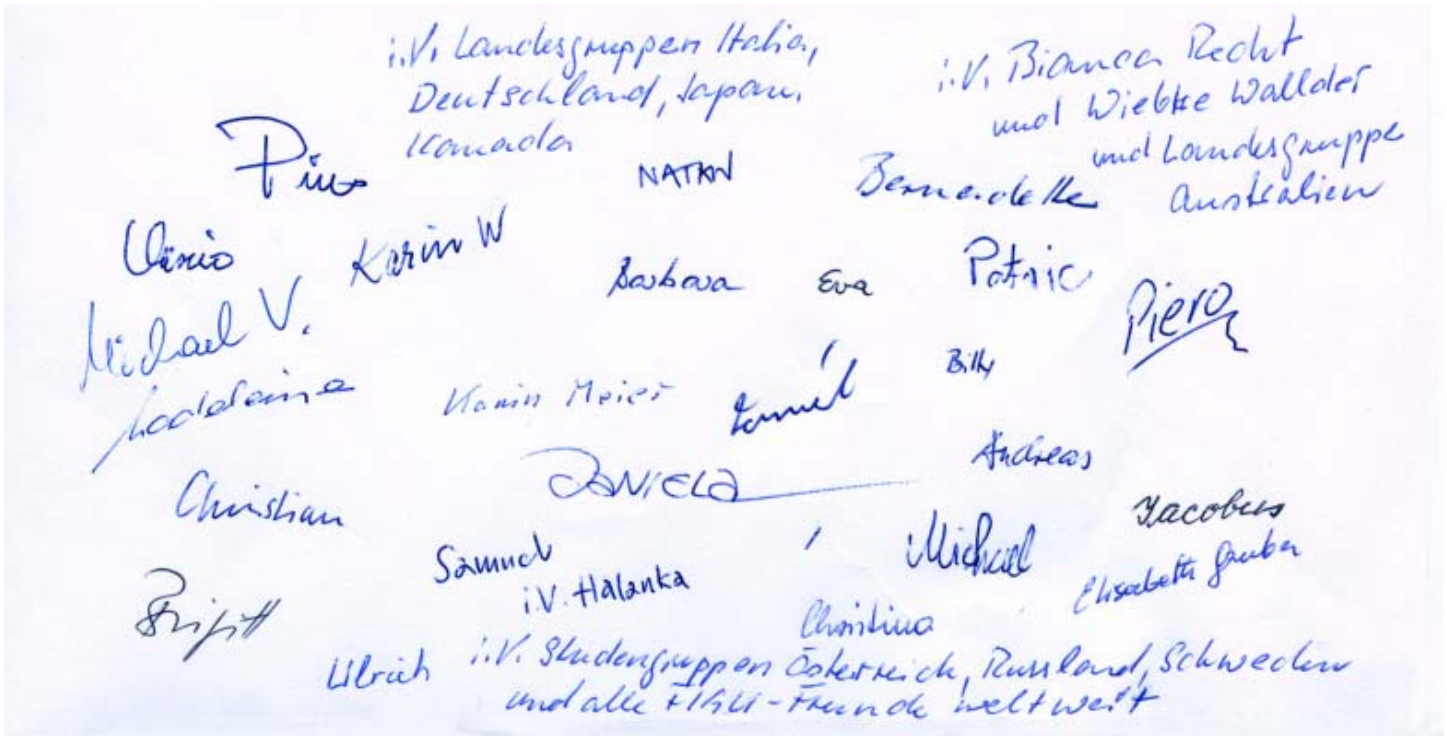 i.V. Landesgruppen Italia,
Deutschland, Japan,
Kanada
i.V. Bianca Recht
und Wiebke Wallder
und Landesgruppe
Australien
Pius
NATAN
Bernadette
Karin W
Barbara
Eva
Patric
Piero
Michael V.
Billy
Karin Meier
Daniela
Andreas
Christian
Jacobus
Samuel
i.V. Halanka
Michael
Elisabeth Gruber
Brigitt
Christina
Ulrich
i.V. Studengruppen Österreich, Russland, Schweden
und alle FIGU-Freunde weltweit